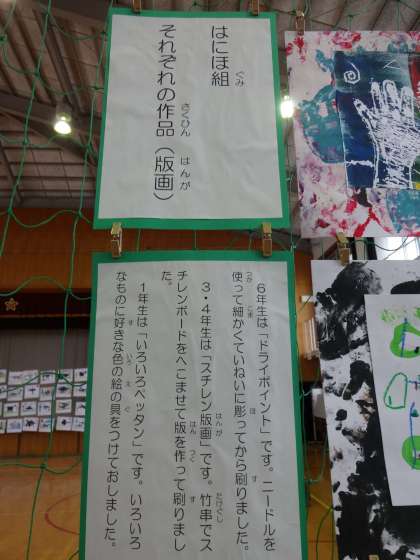 はにほ組
それぞれの作品（版画）
6年生は「ドライポイント」です。ニードルを
使って細かくていねいに彫ってから刷りました。
3・4年生は「スチレン版画」です。竹串でス
チレンボードをへこませて版を作って刷りまし
た。
1年生は「いろいろペッタン」です。いろいろ
なものに好きな色の絵の具をつけておしました。